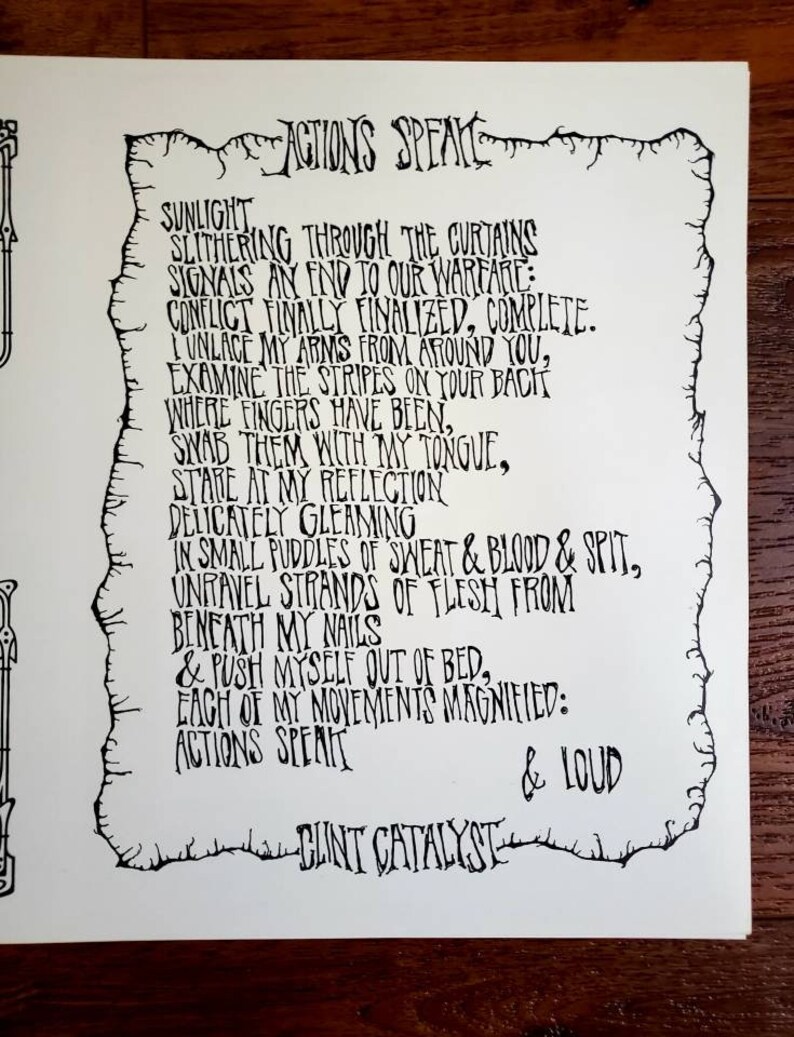 ACTIONS SPEAK
SUNLIGHT
SLITHERING THROUGH THE CURTAINS
SIGNALS AN END TO OUR WARFARE:
CONFLICT FINALLY FINALIZED, COMPLETE.
I UNLACE MY ARMS FROM AROUND YOU,
EXAMINE THE STRIPES ON YOUR BACK
WHERE FINGERS HAVE BEEN,
SWAB THEM WITH MY TONGUE,
STARE AT MY REFLECTION
DELICATELY GLEAMING
IN SMALL PUDDLES OF SWEAT & BLOOD & SPIT,
UNRAVEL STRANDS OF FLESH FROM
BENEATH MY NAILS
& PUSH MYSELF OUT OF BED,
EACH OF MY MOVEMENTS MAGNIFIED:
ACTIONS SPEAK
& LOUD
CLINT CATALYST